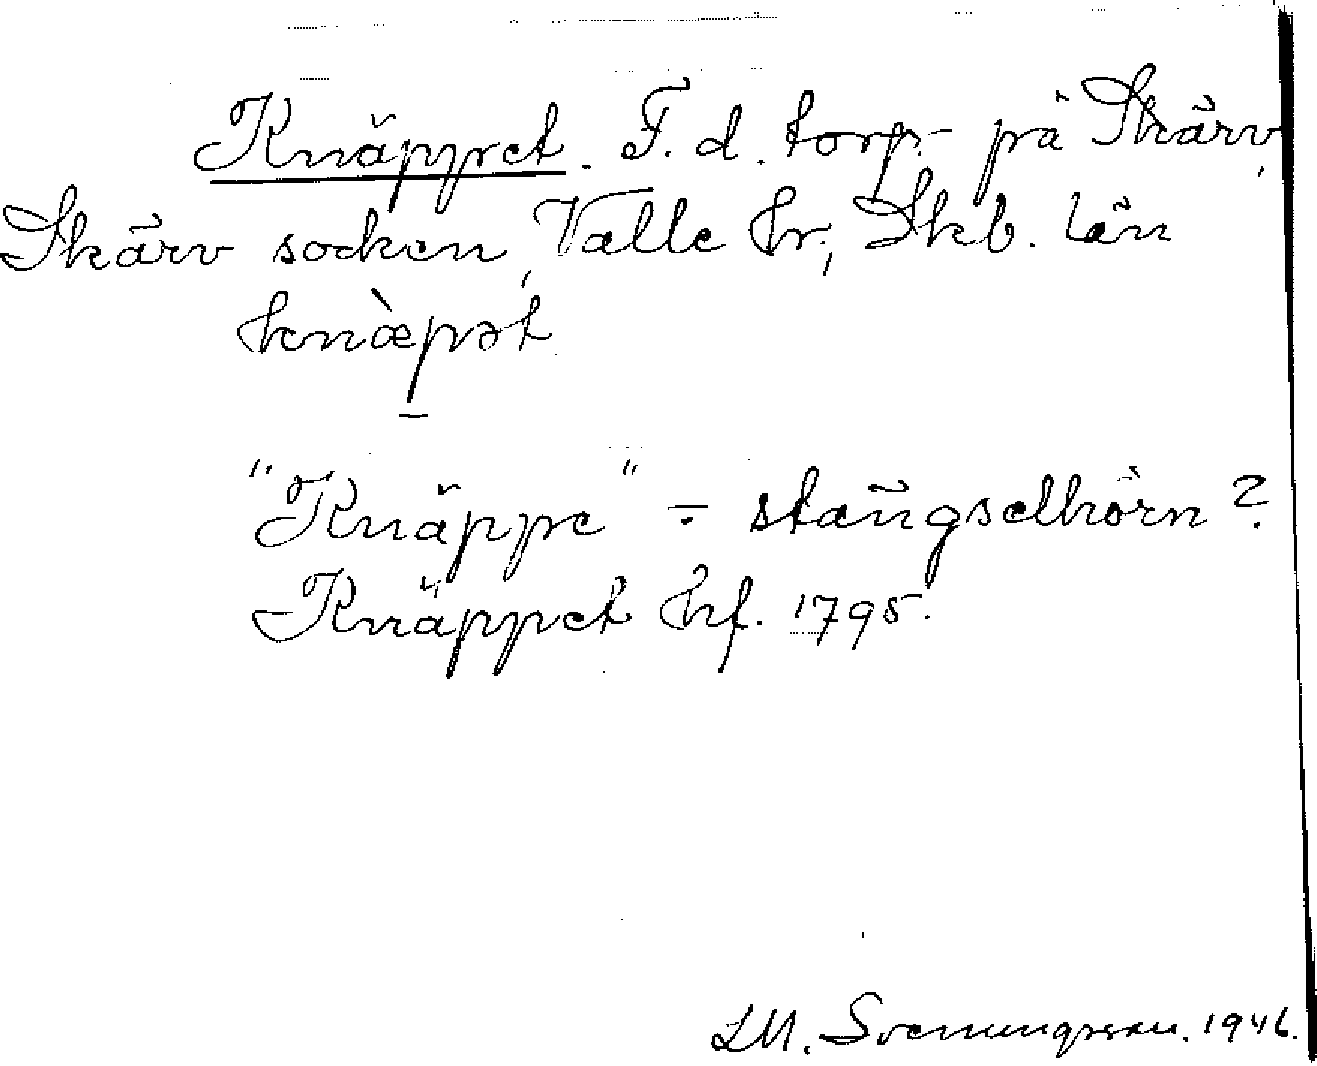 Knäppet. F. d. torp på Skärv,
Skärv socken, Valle hr, Skb. län
knæ̀pət
"Knäppe" = stängselhörn?
Knäppet hf. 1795.
LM. Svenungsson. 1946.